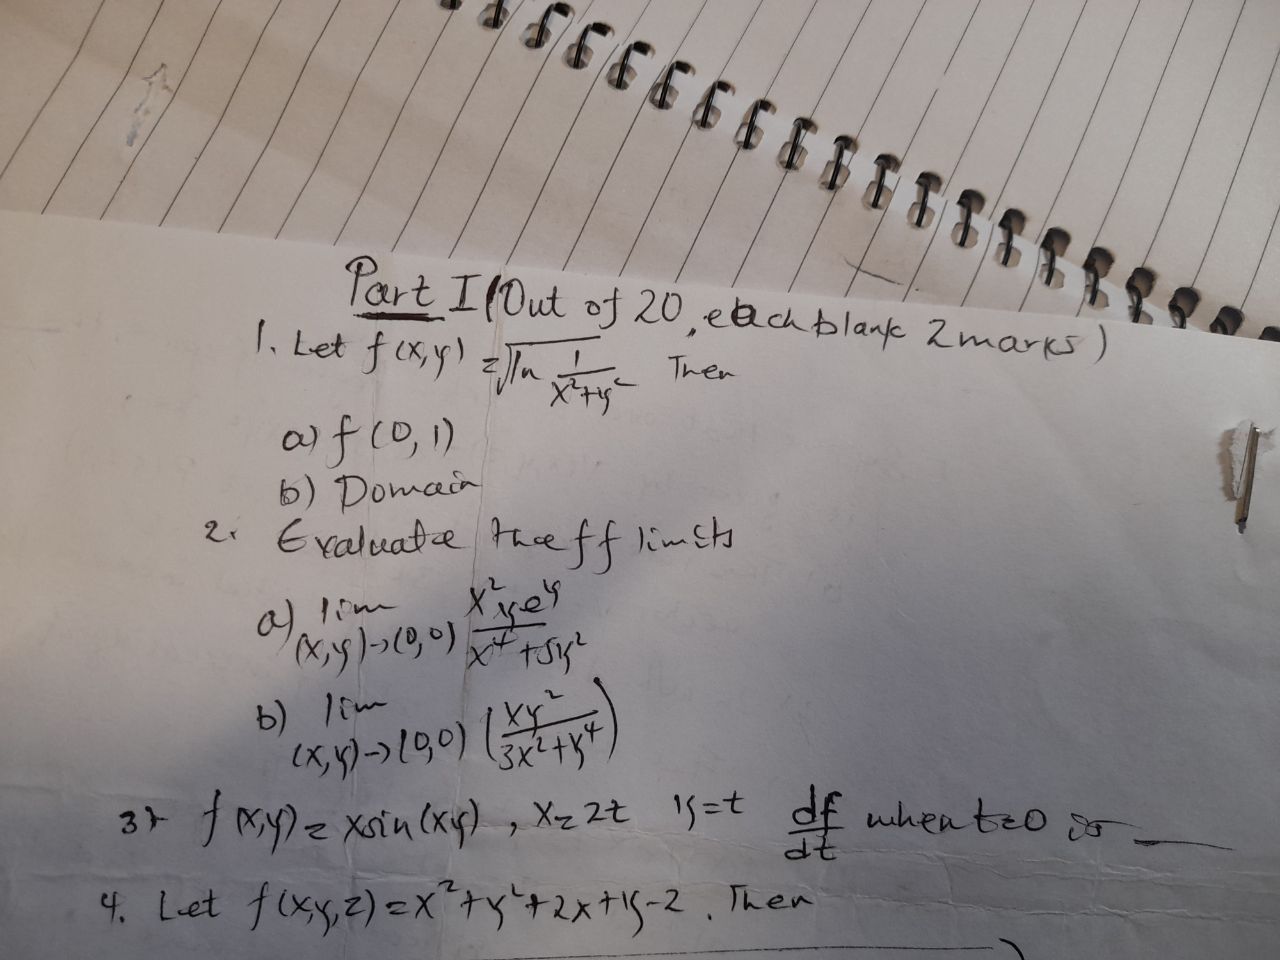 Part I (Out of 20, each blank 2 marks)
1. Let f(x,y) = √ln 1/(x²+y²) Then
a) f(0,1)
b) Domain
2. Evaluate the ff limits
a) lim (x,y)→(0,0) x²ye^y/(x⁴+5y²)
b) lim (x,y)→(0,0) (xy²/(3x²+y⁴))
3) f(x,y) = xsin(xy), x=2t y=t df/dt when t=0 is ___
4. Let f(x,y,z) = x²+y²+2x+y-2. Then